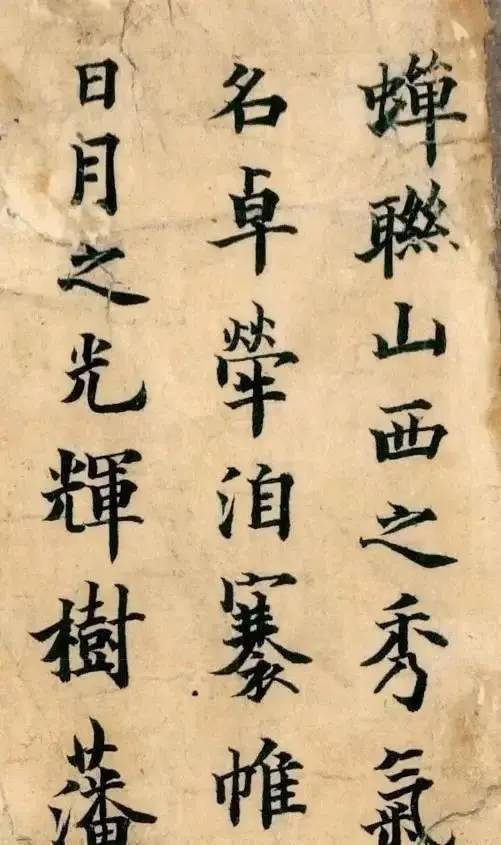 蟬聯山西之秀氣
名卓犖洎褰帷
日月之光輝樹藩